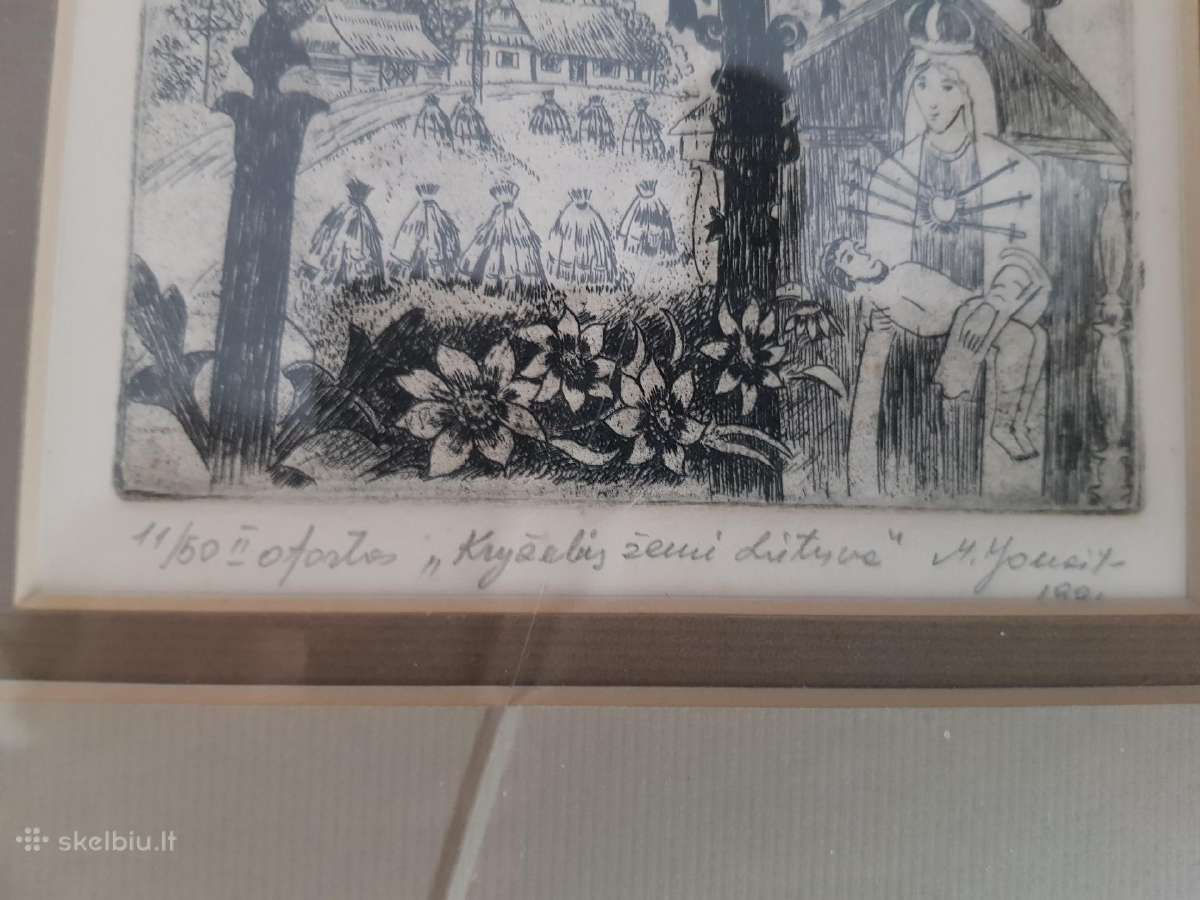 11/50 II ofortas „Kryželių žemi Lietuva“ M. Jonait
199
skelbiu.lt